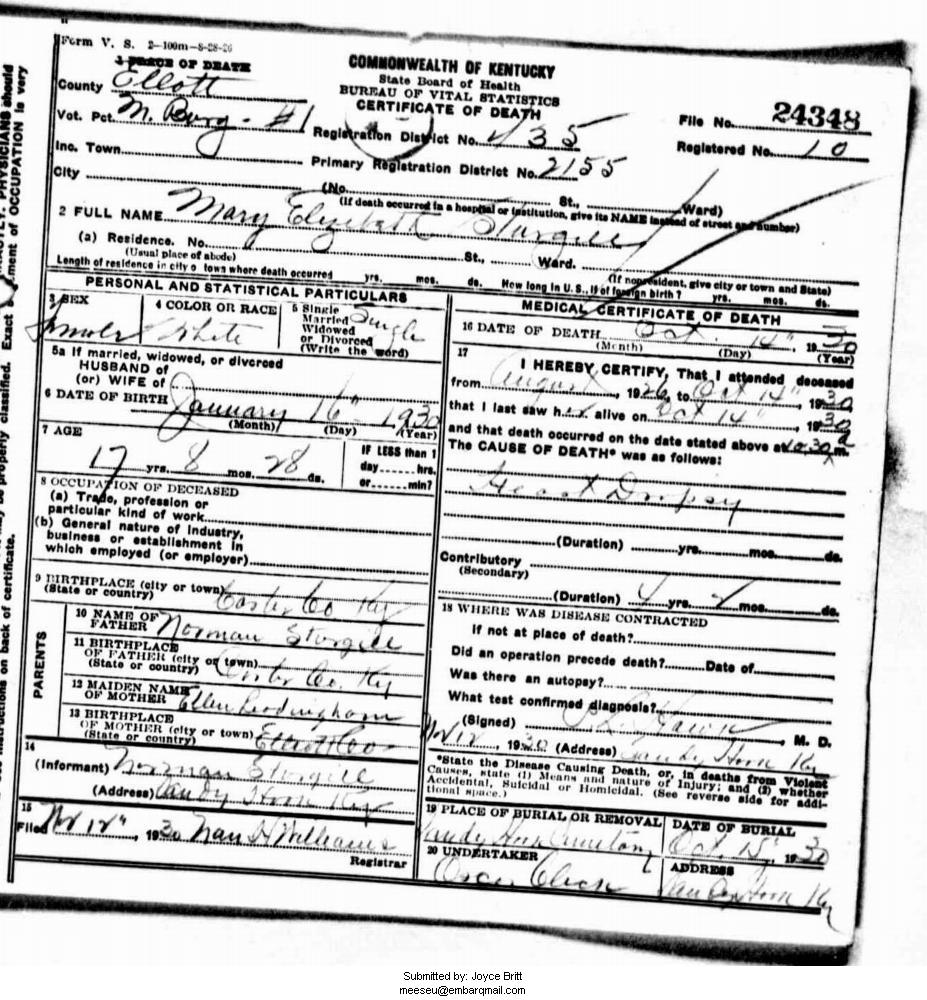 Form V. S. 2-100m-8-28-26
1 PLACE OF DEATH
County Elliott
Vot. Pct. M. Burg - #1
Inc. Town
City
COMMONWEALTH OF KENTUCKY
State Board of Health
BUREAU OF VITAL STATISTICS
CERTIFICATE OF DEATH
Registration District No. 435
Primary Registration District No. 2155
(No. St., Ward)
(If death occurred in a hospital or institution, give its NAME instead of street and number)
File No. 24348
Registered No. 10
2 FULL NAME Mary Elizabeth Sturgill
(a) Residence. No. St., Ward.
(Usual place of abode) (If nonresident, give city or town and State)
Length of residence in city o town where death occurred yrs. mos. ds. How long in U. S., if of foreign birth? yrs. mos. ds.
PERSONAL AND STATISTICAL PARTICULARS
3 SEX
4 COLOR OR RACE White
5 Single
Married
Widowed
or Divorced
(Write the word) Single
5a If married, widowed, or divorced
HUSBAND of
(or) WIFE of
6 DATE OF BIRTH January 16" 1930
(Month) (Day) (Year)
7 AGE
17 yrs. 8 mos. 28 ds.
IF LESS than 1
day hrs.
or min?
8 OCCUPATION OF DECEASED
(a) Trade, profession or
particular kind of work
(b) General nature of industry,
business or establishment in
which employed (or employer)
9 BIRTHPLACE (city or town)
(State or country) Carter Co Ky
PARENTS
10 NAME OF
FATHER Norman Sturgill
11 BIRTHPLACE
OF FATHER (city or town)
(State or country) Carter Co. Ky
12 MAIDEN NAME
OF MOTHER Ellen
13 BIRTHPLACE
OF MOTHER (city or town)
(State or country) Elliott Co
14
(Informant) Norman Sturgill
(Address) Sandy Hook Ky
15
Filed Nov 12", 1930 Nan H Williams
Registrar
MEDICAL CERTIFICATE OF DEATH
16 DATE OF DEATH Oct. 14" 1930
(Month) (Day) (Year)
17
I HEREBY CERTIFY, That I attended deceased
from August, 1926, to Oct 14", 1930,
that I last saw her alive on Oct 14", 1930,
and that death occurred on the date stated above at m.
The CAUSE OF DEATH* was as follows:
Heart Dropsy
(Duration) yrs. mos. ds.
Contributory
(Secondary)
(Duration) 4 yrs. 2 mos. ds.
18 WHERE WAS DISEASE CONTRACTED
If not at place of death?
Did an operation precede death? Date of
Was there an autopsy?
What test confirmed diagnosis?
(Signed) M. D.
Nov 12, 1930 (Address) Sandy Hook Ky
*State the Disease Causing Death, or, in deaths from Violent
Causes, state (1) Means and nature of Injury; and (2) whether
Accidental, Suicidal or Homicidal. (See reverse side for addi-
tional space.)
19 PLACE OF BURIAL OR REMOVAL
Sandy Hook Cemetary
DATE OF BURIAL
Oct. 15", 1930
20 UNDERTAKER
Oscar
ADDRESS
Sandy Hook Ky
Submitted by: Joyce Britt
meeseu@embarqmail.com